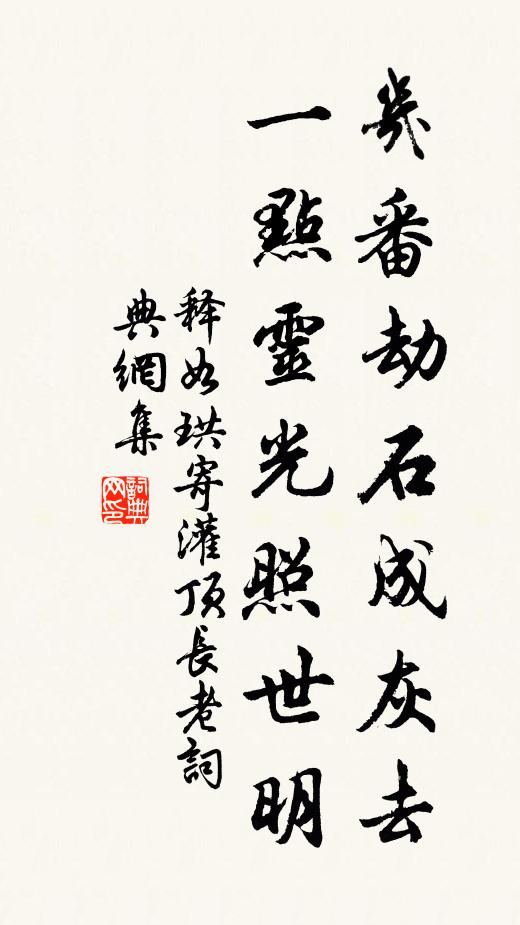 幾番劫石成灰去
一點靈光照世明
释如珙寄灌顶長老詞
典網集
詞典
网印